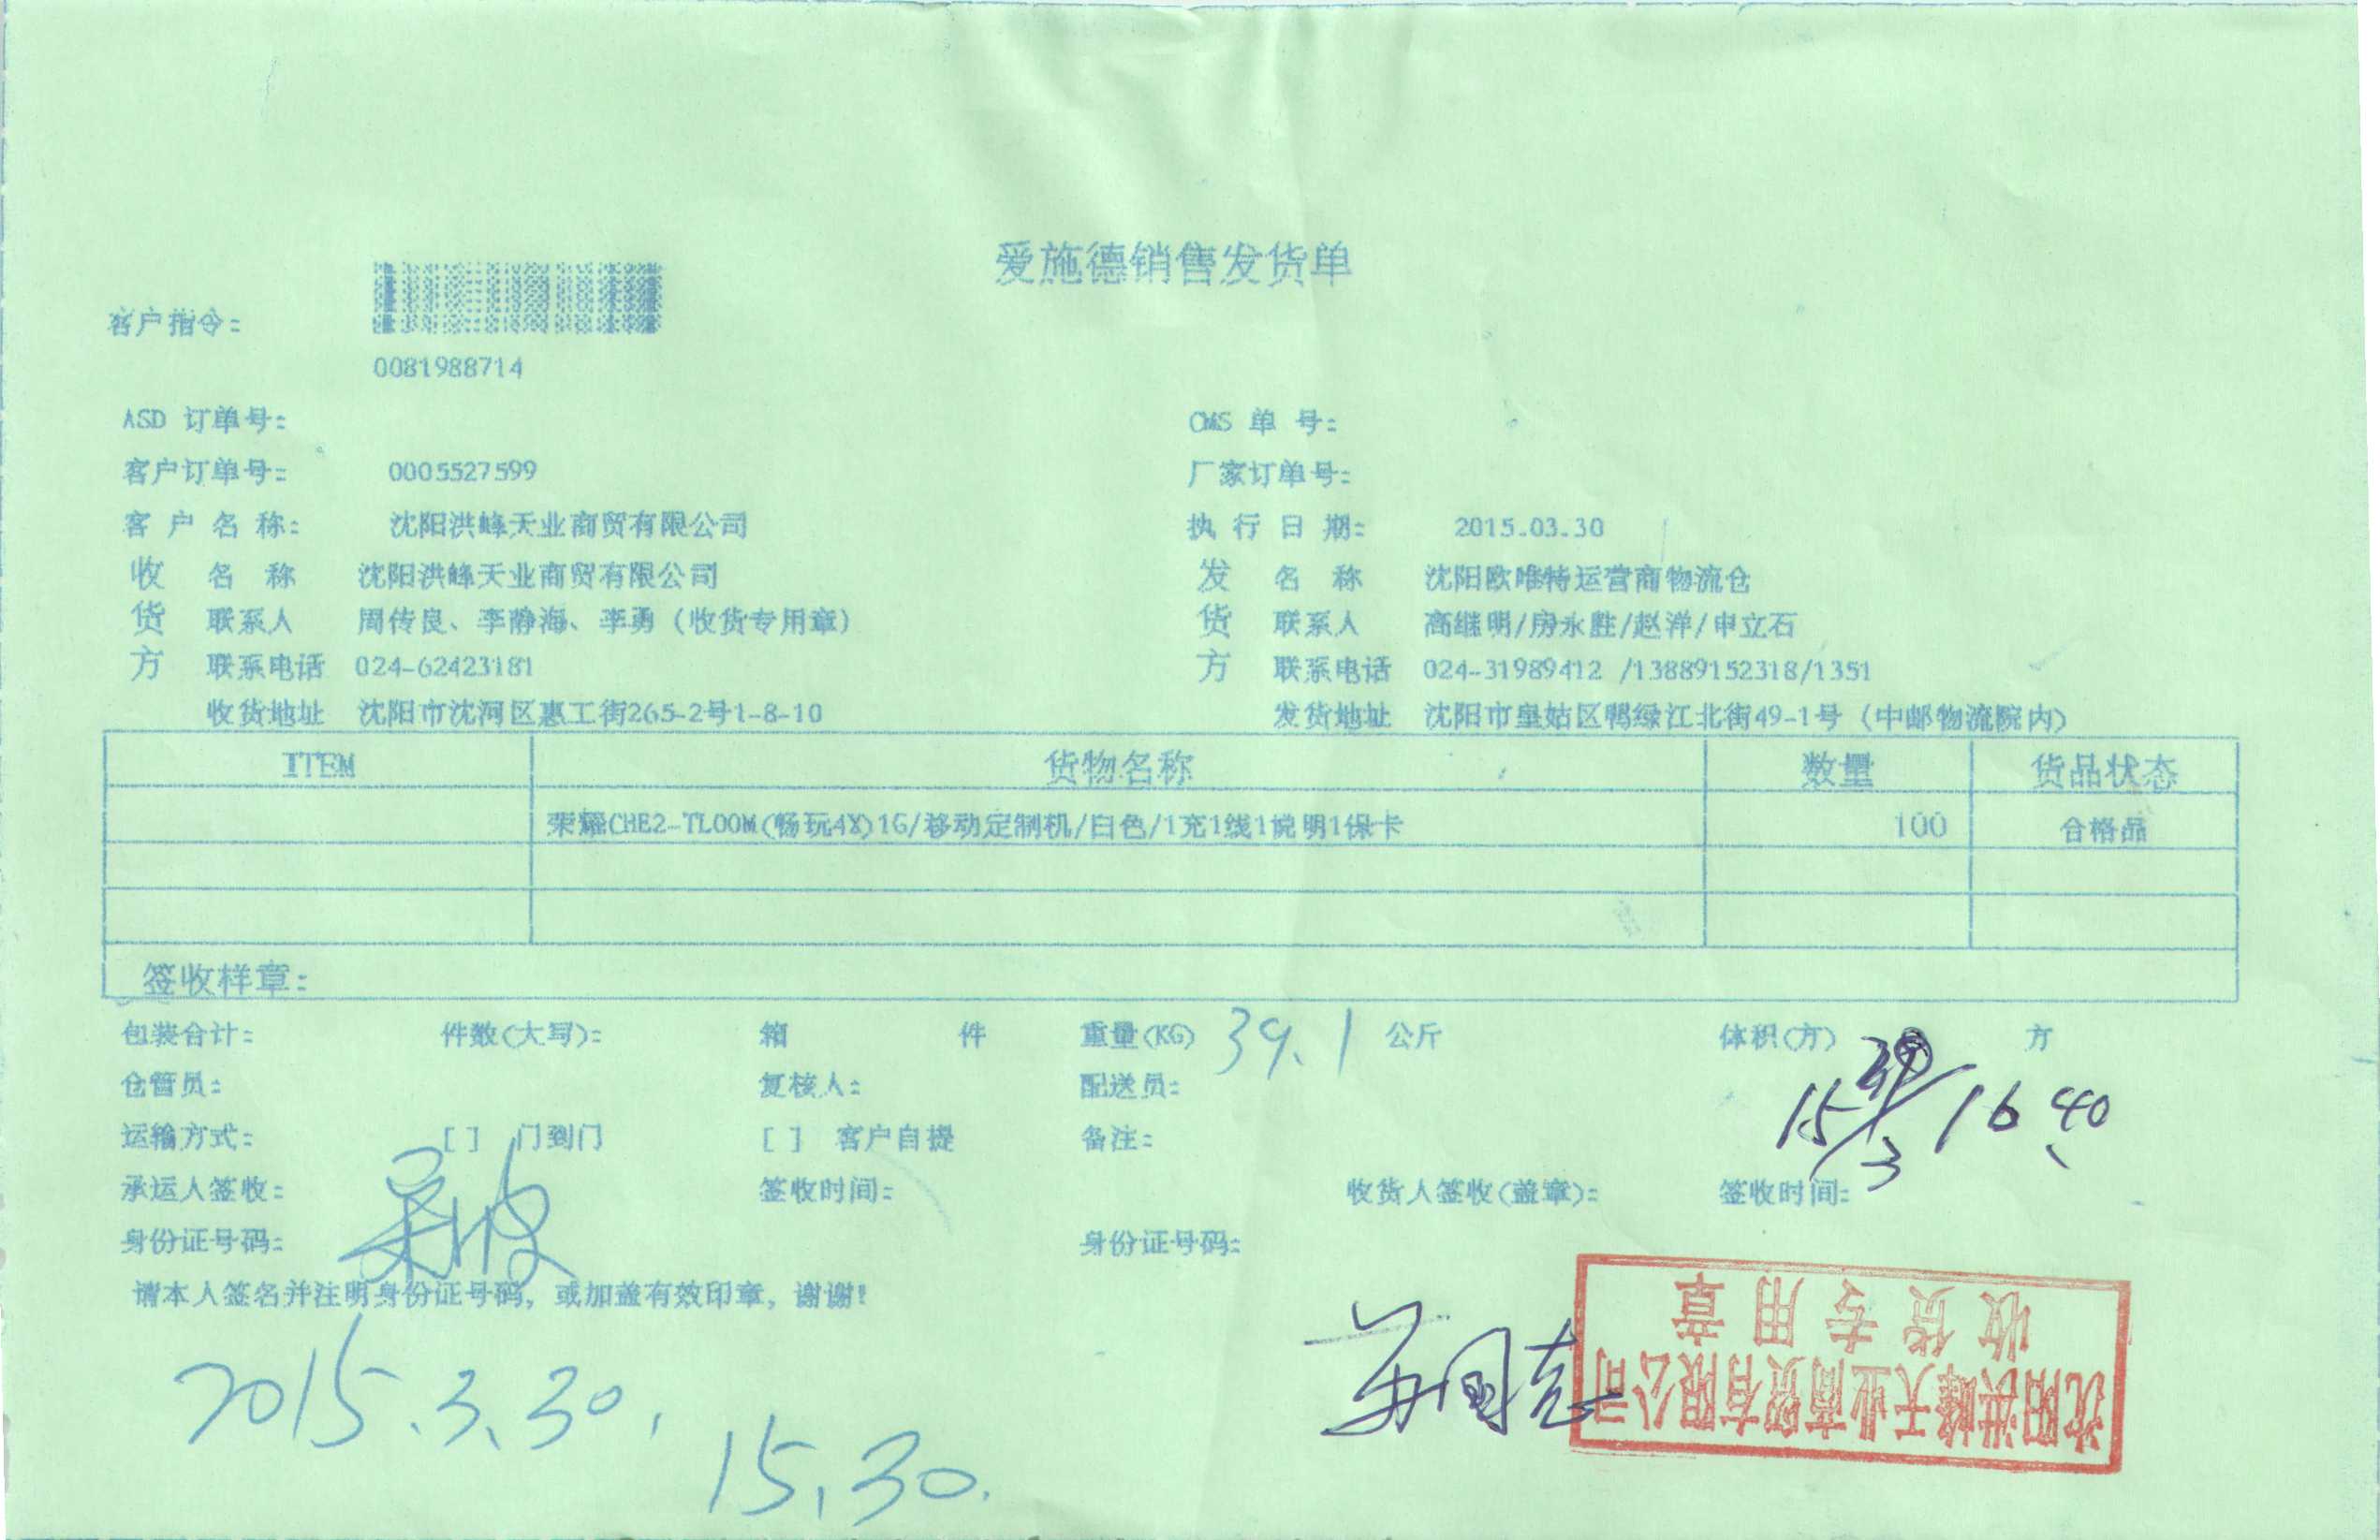 爱施德销售发货单
客户指令:
0081988714
ASD 订单号: CMS 单 号:
客户订单号: 0005527599 厂家订单号:
客 户 名 称: 沈阳洪峰天业商贸有限公司 执 行 日 期: 2015.03.30
收 名 称 沈阳洪峰天业商贸有限公司 发 名 称 沈阳欧唯特运营商物流仓
货 联系人 周传良、李静海、李勇(收货专用章) 货 联系人 高继明/房永胜/赵洋/申立石
方 联系电话 024-62423181 方 联系电话 024-31989412 /13889152318/1351
收货地址 沈阳市沈河区惠工街265-2号1-8-10 发货地址 沈阳市皇姑区鸭绿江北街49-1号(中邮物流院内)
ITEM 货物名称 数量 货品状态
荣耀CHE2-TL00M(畅玩4X)1G/移动定制机/白色/1充1线1说明1保卡 100 合格品
签收样章:
包装合计: 件数(大写): 箱 件 重量(KG) 39.1 公斤 体积(方) 方
仓管员: 复核人: 配送员:
运输方式: [ ] 门到门 [ ] 客户自提 备注:
16 40
承运人签收: 签收时间: 收货人签收(盖章): 签收时间:
身份证号码: 身份证号码:
请本人签名并注明身份证号码,或加盖有效印章,谢谢!
2015.3.30.
15.30.
沈阳洪峰天业商贸有限公司
收货专用章